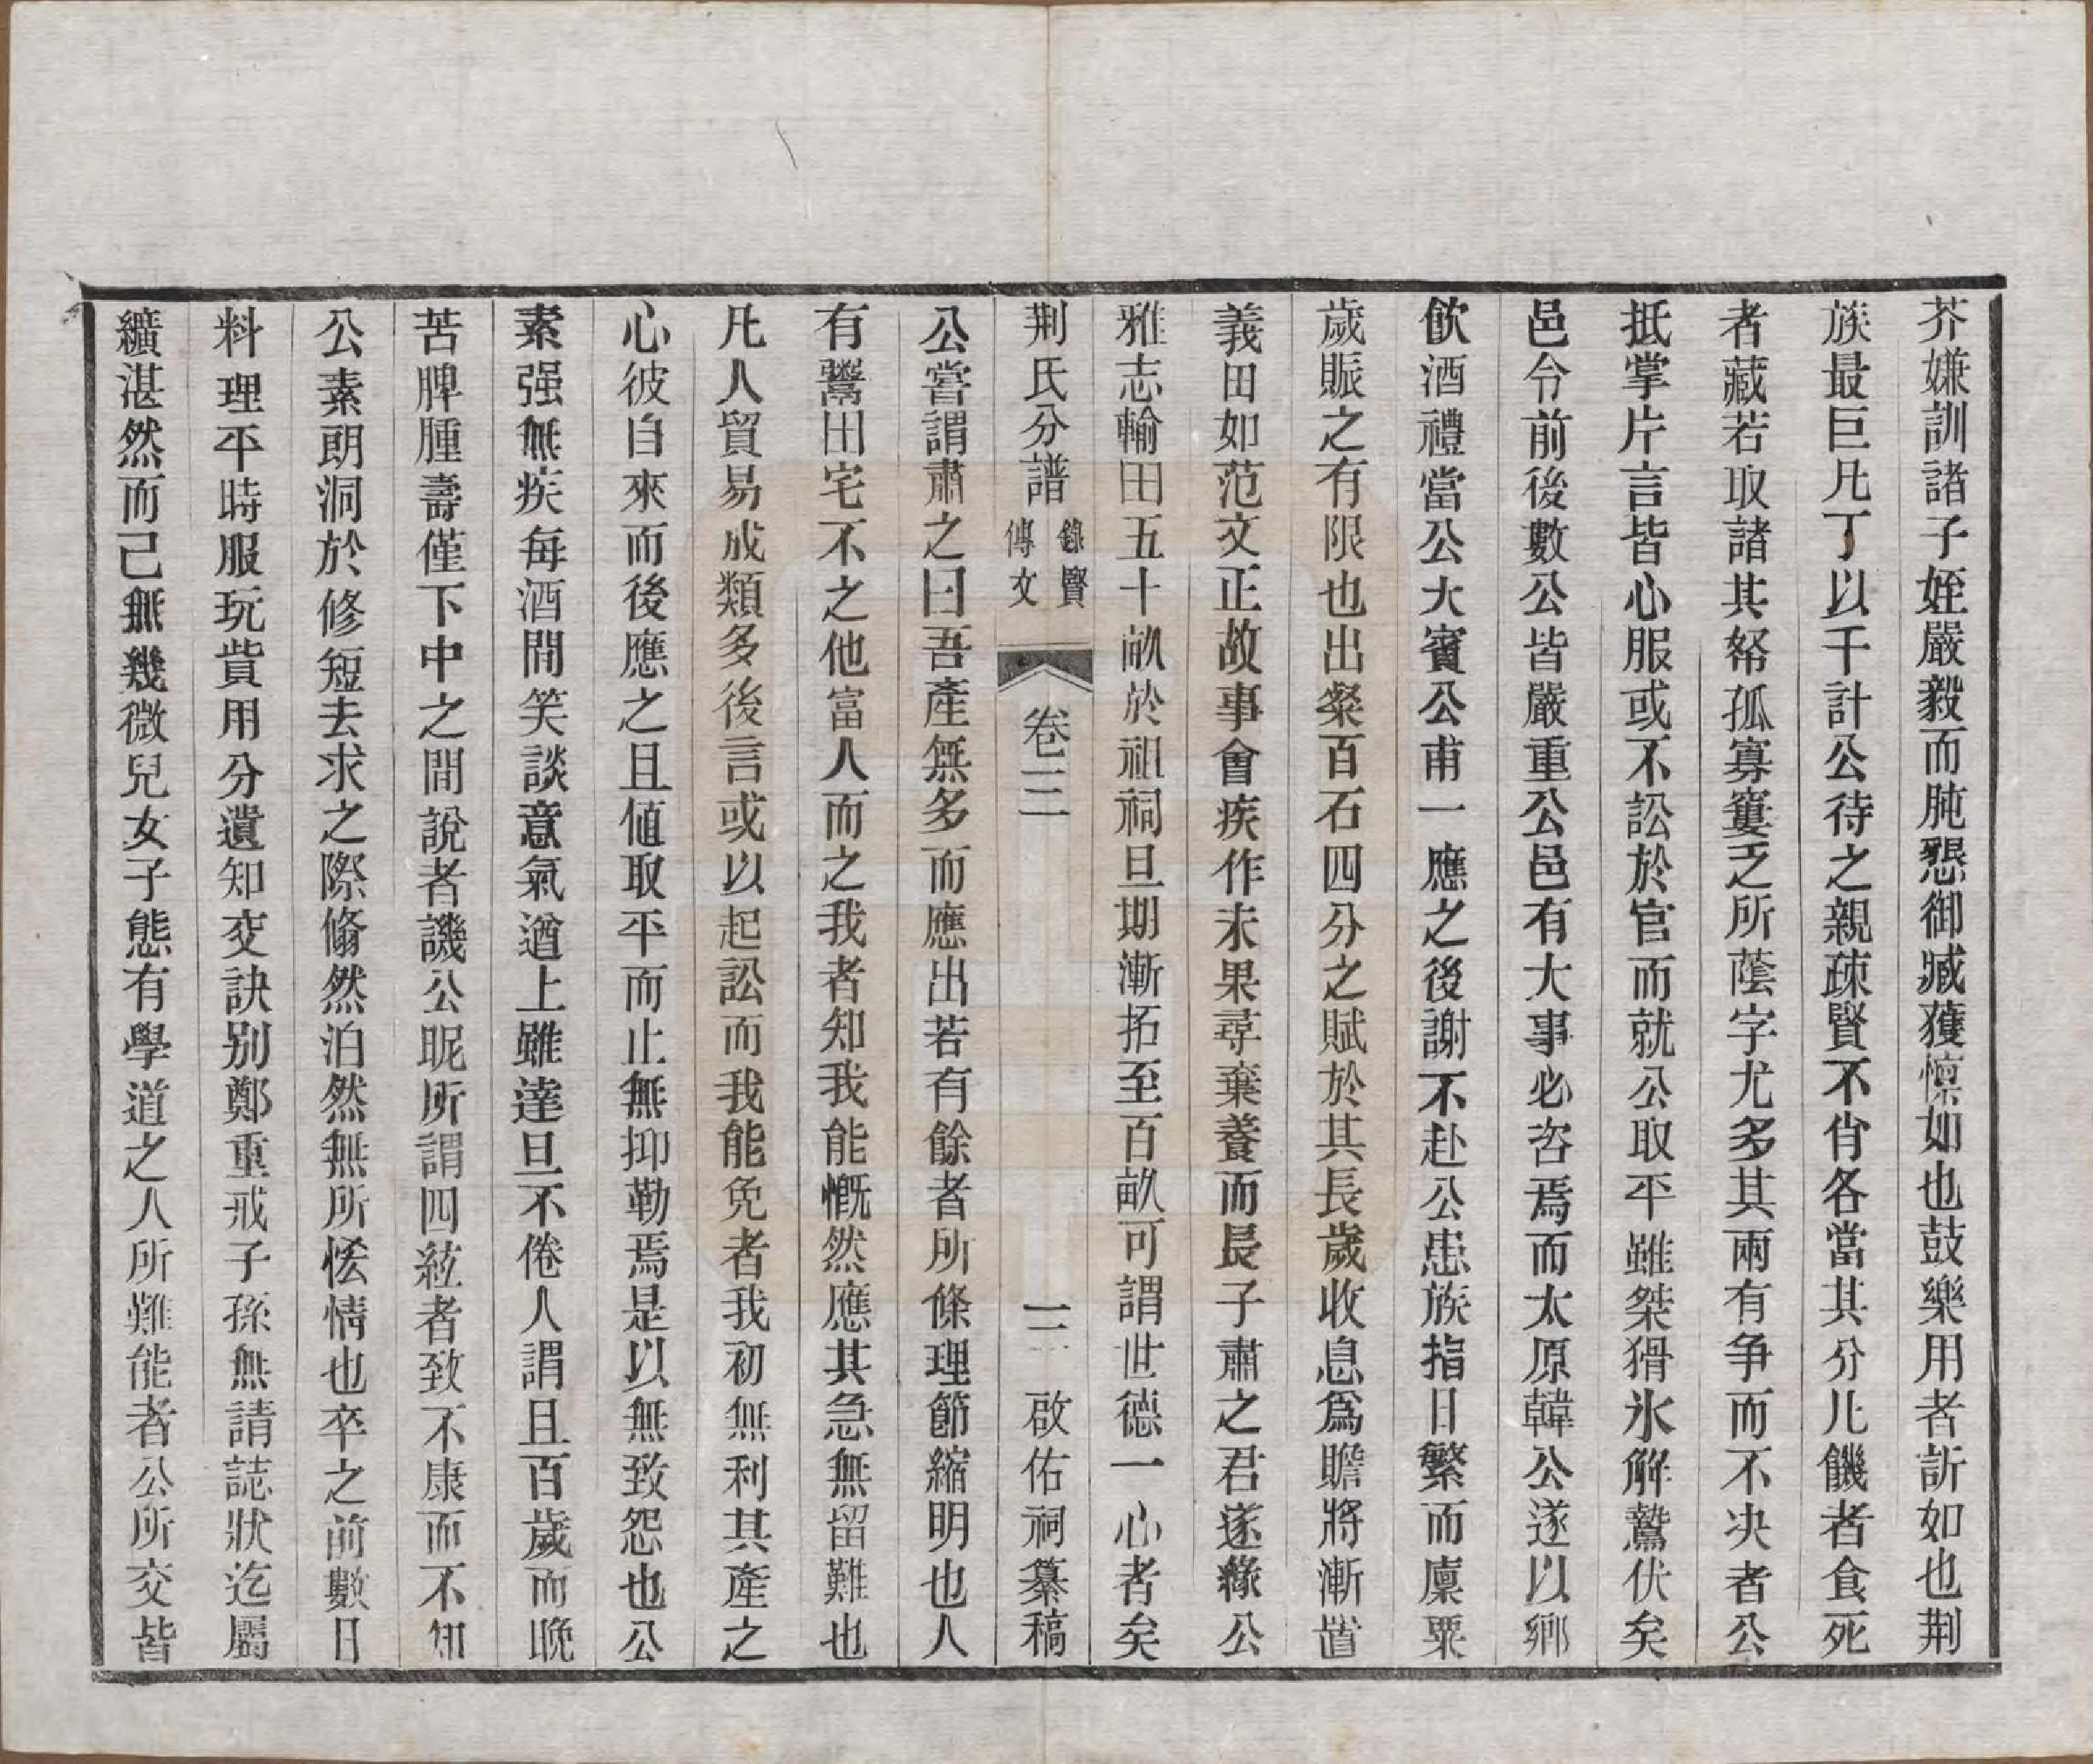 芥嫌訓諸子姪嚴毅而肫懇御臧獲懍如也鼓樂用者訢如也荆
族最巨凡丁以千計公待之親疎賢不肖各當其分凡饑者食死
者藏若取諸其帑孤寡窶乏所蔭字尤多其兩有争而不决者公
抵掌片言皆心服或不訟於官而就公取平雖桀猾氷解鷙伏矣
邑令前後數公皆嚴重公邑有大事必咨焉而太原韓公遂以鄉
飲酒禮當公大賓公甫一應之後謝不赴公患族指日繁而廩粟
歲賑之有限也出粲百石四分之賦於其長歲收息爲贍將漸置
義田如范文正故事會疾作未果尋棄養而長子肅之君遂緣公
雅志輸田五十畝於祖祠旦期漸拓至百畝可謂世德一心者矣
荆氏分譜 錄賢傳文 卷三 二 啟佑祠纂稿
公嘗謂肅之曰吾產無多而應出若有餘者所條理節縮明也人
有鬻田宅不之他富人而之我者知我能慨然應其急無留難也
凡人貿易成類多後言或以起訟而我能免者我初無利其產之
心彼自來而後應之且値取平而止無抑勒焉是以無致怨也公
素强無疾每酒間笑談意氣遒上雖達旦不倦人謂且百歲而晚
苦脾腫壽僅下中之間說者譏公昵所謂四絃者致不康而不知
公素朗洞於修短去求之際翛然泊然無所恡情也卒之前數日
料理平時服玩貲用分遺知交訣别鄭重戒子孫無請誌狀迄屬
纊湛然而已無幾微兒女子態有學道之人所難能者公所交皆